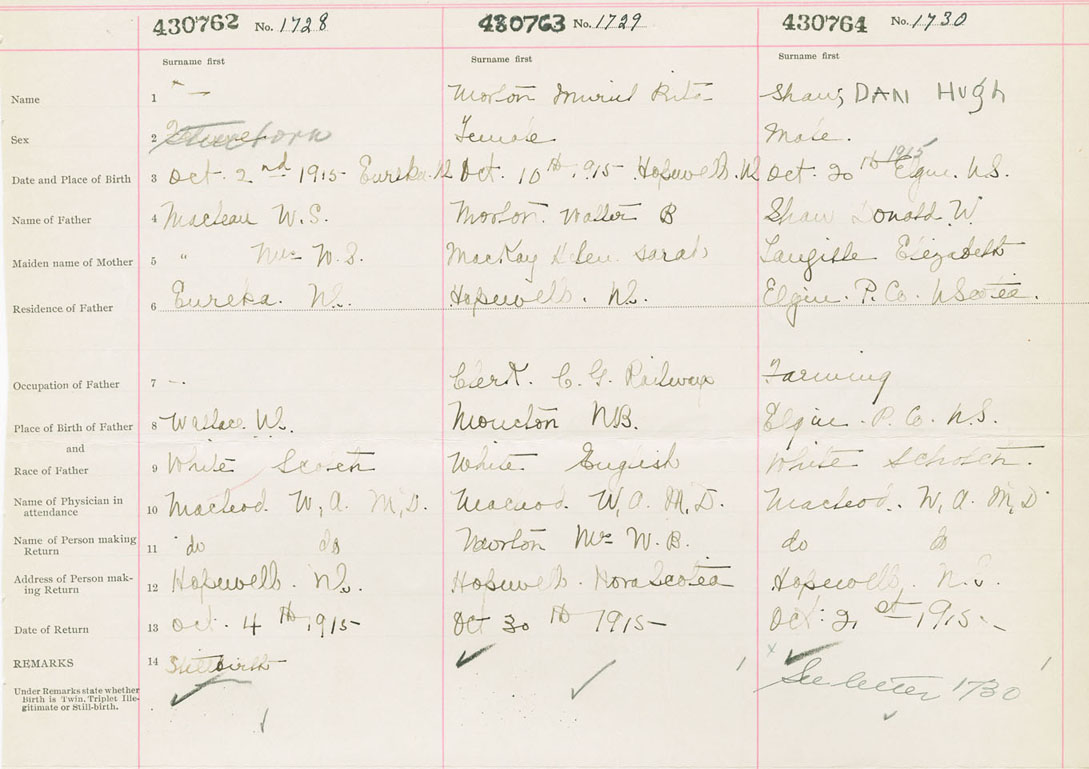 430762 No. 1728 430763 No. 1729 430764 No. 1730
Surname first Surname first Surname first
Name 1 — Morton Muriel Rita Shaw, DAN HUgh
Sex 2 Stillborn Female Male.
Date and Place of Birth 3 Oct. 2nd 1915 Eureka. NS Oct. 10th, 1915 Hopewell. NS Oct. 20th 1915 Elgin. N.S.
Name of Father 4 MacLean W.S. Morton. Walter B Shaw Donald. W.
Maiden name of Mother 5 " Mrs W.S. MacKay Helen Sarah Langille Elizabeth
Residence of Father 6 Eureka. NS. Hopewell. NS. Elgin. P. Co. NScotia.
Occupation of Father 7 -. Clerk. C. G. Railways Farming
Place of Birth of Father 8 Wallace NS. Moncton NB. Elgin. P. Co. N.S.
and
Race of Father 9 White Scotch White English White Schotch.
Name of Physician in
attendance 10 MacLeod. W, A. M,D. MacLeod. W, A. M,D. MacLeod. W, A. M,D
Name of Person making
Return 11 do do Morton Mrs W. B. do do
Address of Person mak-
ing Return 12 Hopewell. NS. Hopewell. Nova Scotia Hopewell, N.S.
Date of Return 13 Oct. 4th, 1915 Oct 30th 1915 Oct. 21st 1915.
REMARKS 14 Stillbirth
Under Remarks state whether
Birth is Twin, Triplet Ille-
gitimate or Still-birth.
See letter 1730